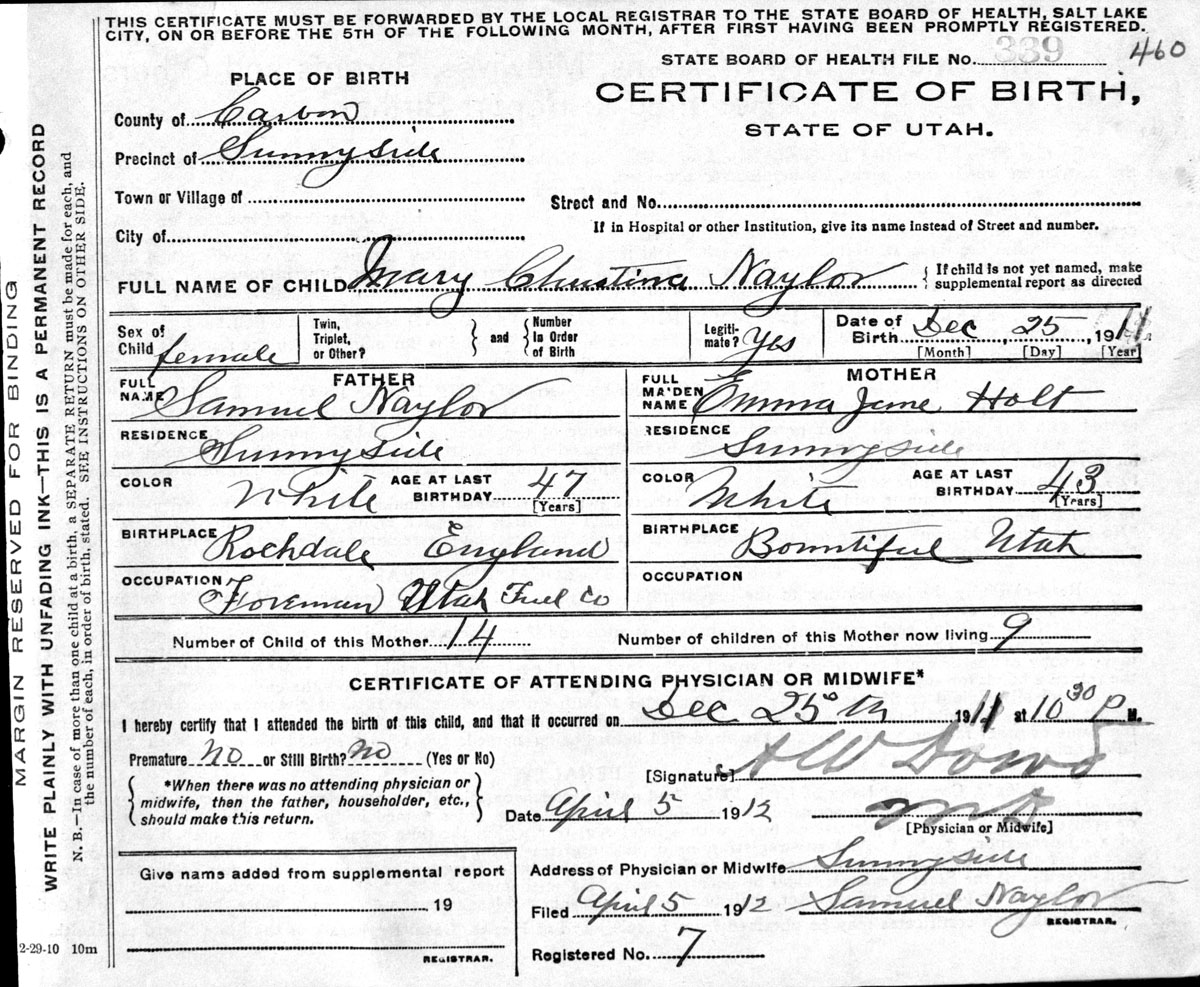 THIS CERTIFICATE MUST BE FORWARDED BY THE LOCAL REGISTRAR TO THE STATE BOARD OF HEALTH, SALT LAKE
CITY, ON OR BEFORE THE 5TH OF THE FOLLOWING MONTH, AFTER FIRST HAVING BEEN PROMPTLY REGISTERED.
STATE BOARD OF HEALTH FILE No. 339 460
PLACE OF BIRTH
CERTIFICATE OF BIRTH,
STATE OF UTAH.
County of Carbon
Precinct of Sunnyside
Town or Village of
Street and No.
City of
If in Hospital or other Institution, give its name instead of Street and number.
FULL NAME OF CHILD Mary Christina Naylor { If child is not yet named, make
supplemental report as directed
Sex of
Child female
Twin,
Triplet,
or Other?
} and {
Number
in Order
of Birth
Legiti-
mate? Yes
Date of
Birth Dec, 25, 1911
[Month] [Day] [Year]
FATHER
FULL
NAME Samuel Naylor
MOTHER
FULL
MAIDEN
NAME Emma Jane Holt
RESIDENCE Sunnyside
RESIDENCE Sunnyside
COLOR White AGE AT LAST
BIRTHDAY 47
[Years]
COLOR White AGE AT LAST
BIRTHDAY 43
[Years]
BIRTHPLACE Rochdale England
BIRTHPLACE Bountiful Utah
OCCUPATION Foreman Utah Fuel Co
OCCUPATION
Number of Child of this Mother 14 Number of children of this Mother now living 9
CERTIFICATE OF ATTENDING PHYSICIAN OR MIDWIFE*
I hereby certify that I attended the birth of this child, and that it occurred on Dec 25th 1911 at 10 30 P M.
Premature No or Still Birth? No (Yes or No)
[Signature] A W Dowd
{ *When there was no attending physician or
midwife, then the father, householder, etc.,
should make this return. }
Date April 5 1912 MD
[Physician or Midwife]
Give name added from supplemental report
19
REGISTRAR.
Address of Physician or Midwife Sunnyside
Filed April 5 1912 Samuel Naylor
REGISTRAR.
Registered No. 7
2-29-10 10m
MARGIN RESERVED FOR BINDING
WRITE PLAINLY WITH UNFADING INK—THIS IS A PERMANENT RECORD
N. B.—In case of more than one child at a birth, a SEPARATE RETURN must be made for each, and
the number of each, in order of birth, stated. SEE INSTRUCTIONS ON OTHER SIDE.